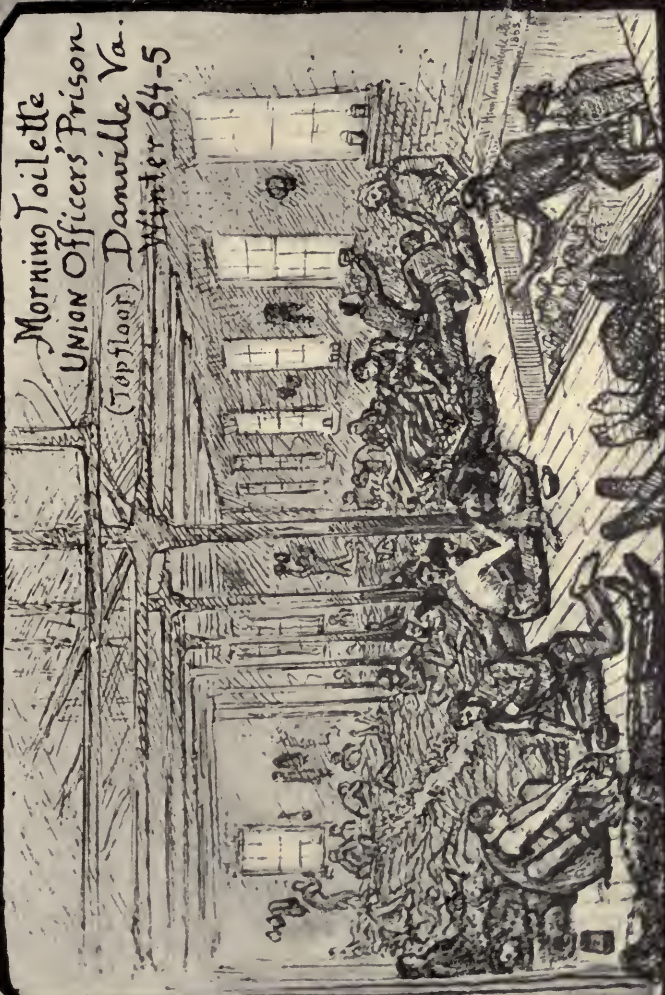 Morning Toilette
UNION Officers' Prison
(Top floor) Danville Va.
Winter 64-5
1865.